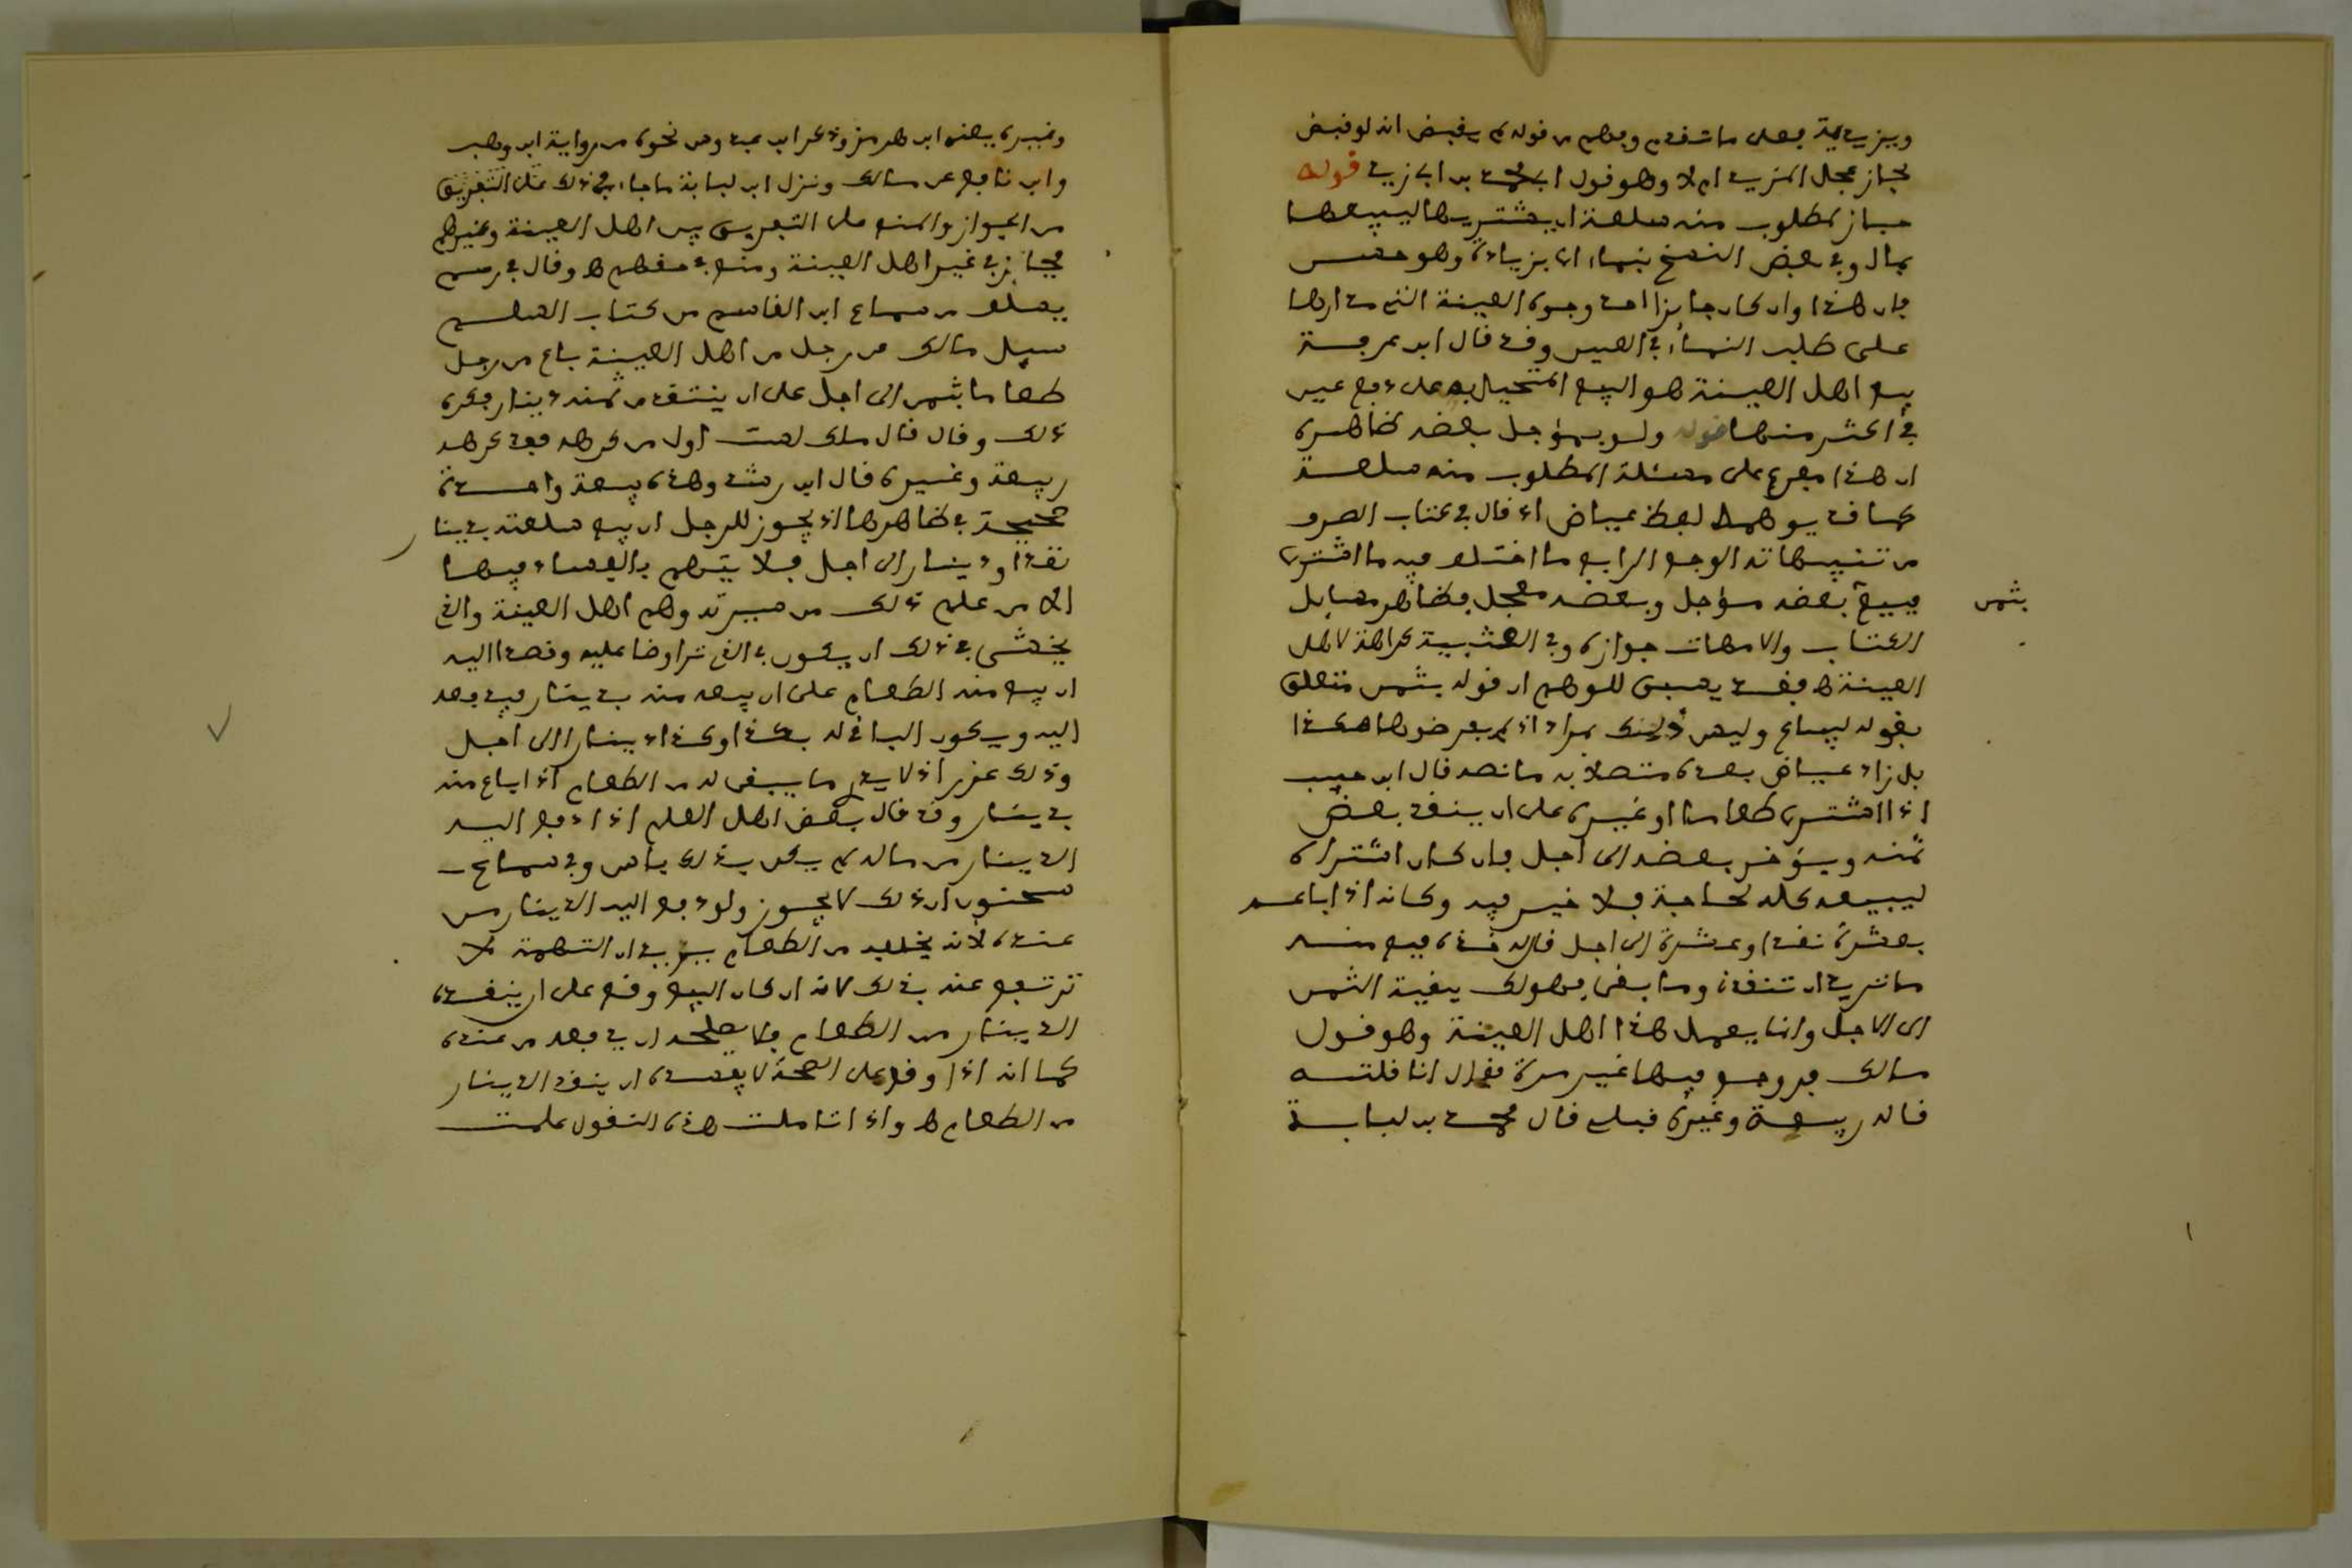 ويزيده فعلى ما تقدم وفهم من قوله لم يقبض انه لو قبض
لجاز عجل المزيد ام لا وهو قول ابي محمد بن ابي زيد قوله
جاز لمطلوب منه سلعة ان يشتريها ليبيعها
بمال وفي بعض النسخ بنماء اي بزيادة وهو حسن
فان هذا وان كان جائزا احد وجوه العينة التي مدارها
على طلب النماء في العين وقد قال ابن عرفة
بيع اهل العينة هو البيع المتحيل به على دفع عين
في اكثر منها قوله ولو بمؤجل بعضه ظاهره
ان هذا مفرع على مسئلة المطلوب منه سلعة
كما قد يوهمه لفظ عياض اذ قال في كتاب الصرف
من تنبيهاته الوجه الرابع ما اختلف فيه ما اشترى
بثمن
فيبيع بعضه مؤجل وبعضه معجل فظاهر مسايل
الكتاب والامهات جوازه وفي العتبية كراهة لاهل
العينة ه فقد يسبق للوهم ان قوله بثمن متعلق
بقوله ليباع وليس ذلك بمراد اذ لم يفرضوها هكذا
بل زاد عياض بعده متصلا به ما نصه قال ابن حبيب
اذا اشترى طعاما او غيره على ان ينقد بعض
ثمنه ويؤخر بعضه الى اجل فان كان اشتراه
ليبيعه كله لحاجة فلا خير فيه وكانه اذا باعه
بعشرة نقدا وعشرة الى اجل قال له خذه فبع منه
ما تريد ان تنقدني وما بقي فهو لك ببقية الثمن
الى الاجل وانما يعمل هذا اهل العينة وهو قول
مالك فروجع فيها غير مرة فقال انا قلته
قاله ربيعة وغيره قبلي قال محمد بن لبابة
وغيره يعني ابن هرمز وذكر ابن عبدوس نحوه من رواية ابن وهب
وابن نافع عن مالك ونزل ابن لبابة ما جاء في ذلك على التفريق
من الجواز والمنع على التفريق بين اهل العينة وغيرهم
فجائز في غير اهل العينة ومنع في حقهم ه وقال في رسم
يسلف من سماع ابن القاسم من كتاب السلم
سيل مالك عن رجل من اهل العينة باع من رجل
طعاما بثمن الى اجل على ان ينتقد من ثمنه دينارا فكره
ذلك وقال قال ملك لست اول من كرهه فقد كرهه
ربيعة وغيره قال ابن رشد وهذه بيعة واحدة
صحيحة في ظاهرها اذ يجوز للرجل ان يبيع سلعته بدينار
نقدا ودينار الى اجل فلا يتهم بالفساد فيها
الا من علم ذلك من سيرته وهم اهل العينة والذي
يخشى في ذلك ان يكون في الذي تراوضا عليه وقصدا اليه
ان يبيع منه الطعام على ان يبيعه منه بدينار فيدفعه
اليه ويكون الباقي له بكذا وكذا دينارا الى اجل
وذلك غرر اذ لا يدري ما يبقى له من الطعام اذا باع منه
بدينار وقد قال بعض اهل العلم اذا دفع اليه
الدينار من ماله لم يكن بذلك باس وفي سماع
سحنون ان ذلك لا يجوز ولو دفع اليه الدينار من
عنده لانه يخلفه من الطعام يريد ان التهمة لا
ترتفع عنه بذلك لانه ان كان البيع وقع على ان ينقده
الدينار من الطعام فلا يصلحه ان يدفعه من عنده
كما انه اذا وقع على الصحة لا يفسده ان ينقد الدينار
من الطعام ه واذا تاملت هذه النقول علمت